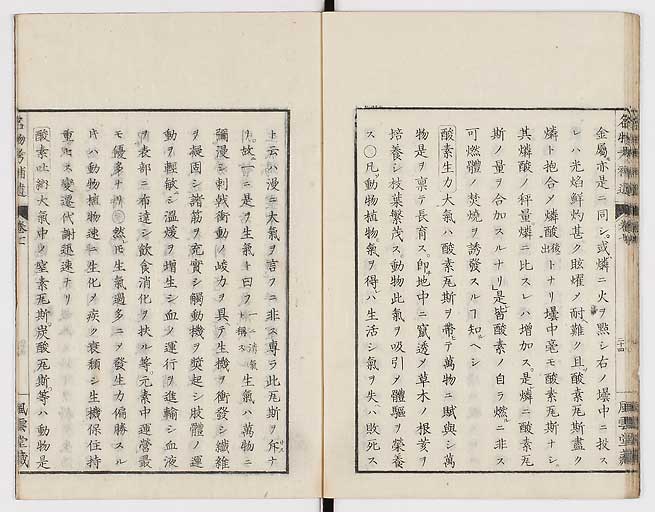 金屬亦是ニ同シ。或ハ燐ニ火ヲ點シ右ノ壜中ニ投ス
レハ光焰鮮灼甚ク眩燿〆耐難ク且酸素瓦斯盡ク
燐ト抱合〆燐酸トナリ壜中毫モ酸素瓦斯ナシ。
其燐酸ノ秤量燐ニ比スレハ增加ス。是燐ニ酸素瓦
斯ノ量ヲ合加スルナリ。是皆酸素ノ自ラ燃ニ非ス
可燃體ノ焚燒ヲ誘發スルヿ知ヘシ
酸素生力大氣ハ酸素瓦斯ヲ帶テ萬物ニ賦與シ萬
物是ヲ禀テ長育ス。卽地中ニ竄透〆草木ノ根荄ヲ
培養シ枝葉繁茂ス。動物此氣ヲ吸引〆體軀ヲ榮養
ス〇凡動物植物氣ヲ得ハ生活シ氣ヲ失ハ敗死ス
上云ハ漫ニ大氣ヲ言フニ非ス專ラ此瓦斯ヲ斥ナ
リ。故ニ是ヲ生氣ト曰フ 生氣ハ萬物ニ
彌漫シ刺戟衝動ノ峻力ヲ具テ生機ヲ衝發シ纖維
ヲ凝固シ諸筋ヲ充實シ觸動機ヲ奬起シ肢體ノ運
動ヲ輕敏シ溫煖ヲ增生シ血ノ運行ヲ進輸シ血液
ヲ表部ニ布達シ飮食消化ヲ扶ル等元素中運營最
モ優多ナリ。然モ生氣過多ニ〆發生力偏勝スル
ハ動物植物速ニ生化〆疾ク衰頽シ生機保住持
重セス變還代謝迅速ナリ
酸素吐納大氣中ノ窒素瓦斯炭酸瓦斯等ハ動物是
名物考補遺 卷七
風雲堂藏